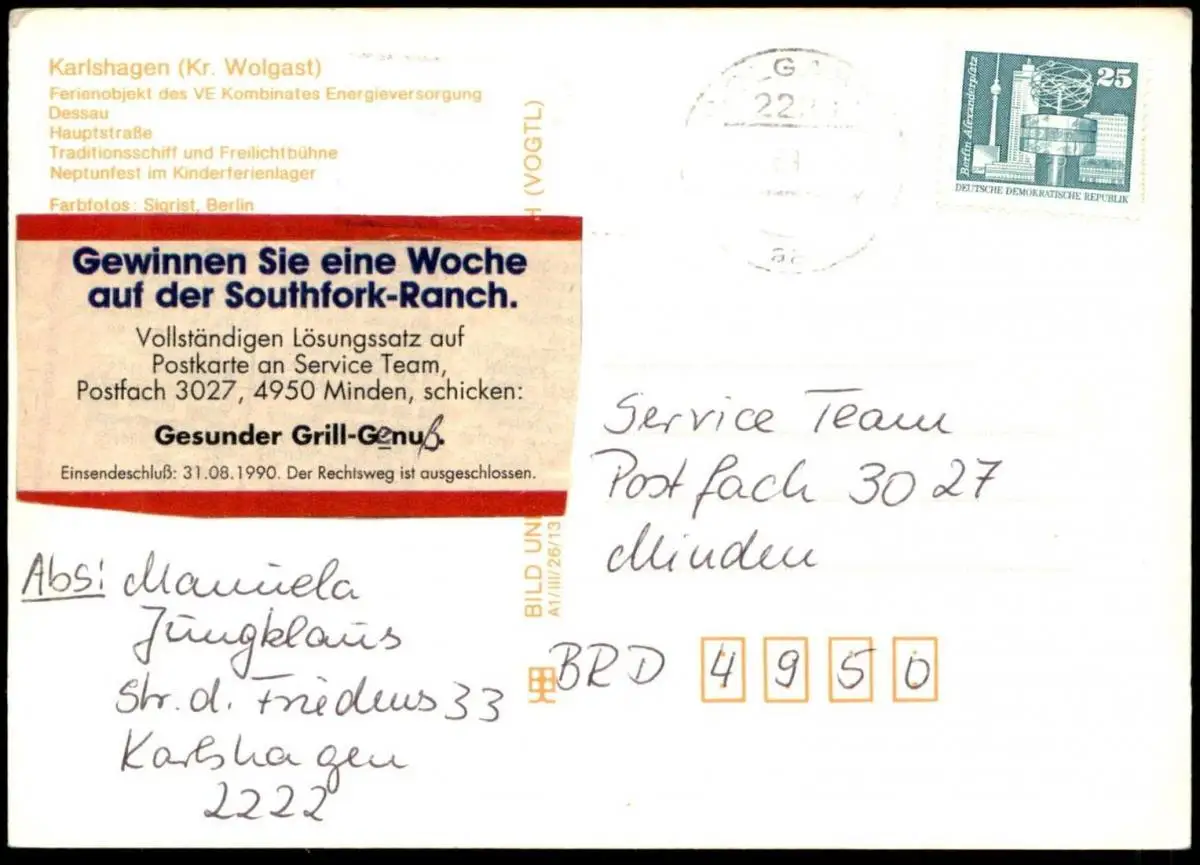 Karlshagen (Kr. Wolgast)
Ferienobjekt des VE Kombinates Energieversorgung
Dessau
Hauptstraße
Traditionsschiff und Freilichtbühne
Neptunfest im Kinderferienlager
Farbfotos: Sigrist, Berlin
Gewinnen Sie eine Woche
auf der Southfork-Ranch.
Vollständigen Lösungssatz auf
Postkarte an Service Team,
Postfach 3027, 4950 Minden, schicken:
Gesunder Grill-Genuß.
Einsendeschluß: 31.08.1990. Der Rechtsweg ist ausgeschlossen.
Abs: Manuela
Jungklaus
Str. d. Friedens 33
Karlshagen
2222
BILD UN
H (VOGTL)
A1/III/26/13
22
25
Berlin Alexanderplatz
DEUTSCHE DEMOKRATISCHE REPUBLIK
Service Team
Postfach 3027
Minden
BRD 4950